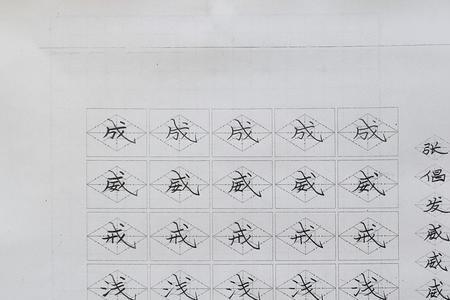 成 成 成 成 成
威 威 威 威 威
戒 戒 戒 戒 戒
浅 浅 浅 浅 浅
张
倡
发
威
威
威